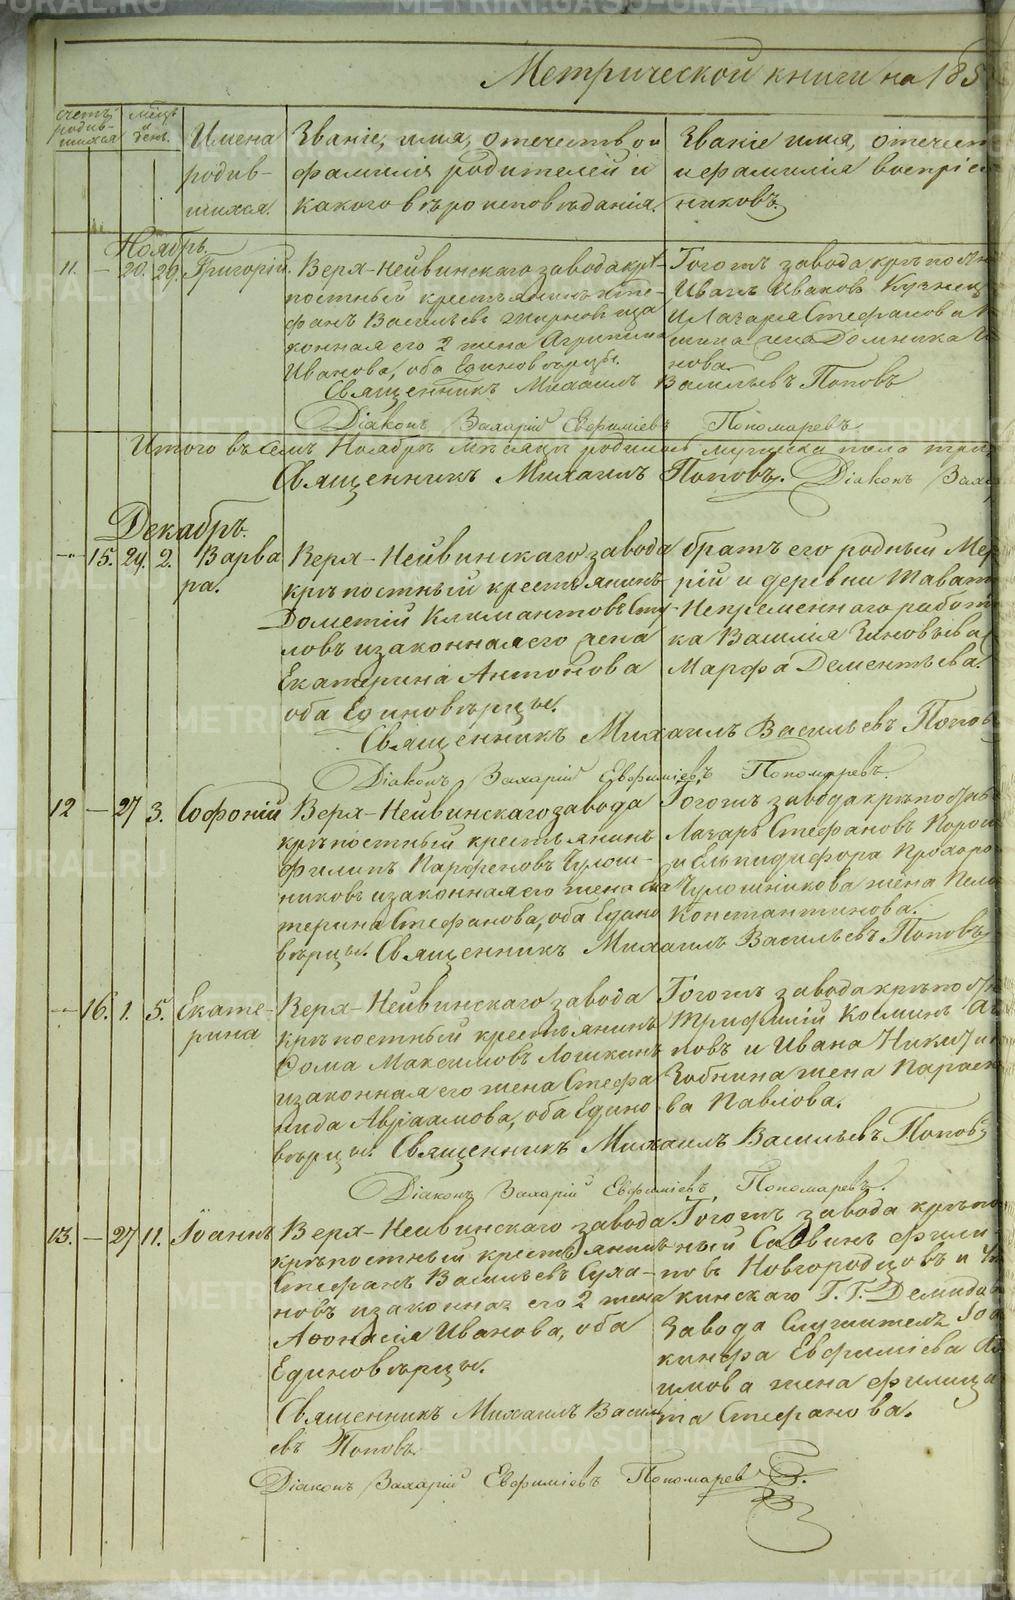 Метрической книги на 185
счетъ родив-шихся
мѣсяцъ и день.
Имена родив-шихся.
Званіе, имя, отечество и фамилія родителей и какого вѣроисповѣданія.
Званіе имя, отечест и фамилія воспріем никовъ.
Ноябрь.
11. — 20. 29. Григорій.
Верх-Нейвинскаго завода крѣ-
постный крестьянинъ Сте-
фанъ Васильевъ и за
конная его 2 жена Агрипина
Иванова, оба Единовѣрцы.
Тогожъ завода крѣпостн
Иванъ Ивановъ Кузнец
и Лазаря Стефанова
жена Домника
нова.
Священникъ Михаилъ Васильевъ Поповъ
Діаконъ Захарій Евфиміевъ Пономаревъ
Итого въ семъ Ноябрѣ мѣсяцѣ родилось мужеска пола три,
Священникъ Михаилъ Поповъ. Діаконъ Заха
Декабрь.
— 15. 24. 2. Варва
ра.
Верх-Нейвинскаго завода
крѣпостный крестьянинъ
Дометій Климантовъ
ловъ и законная его жена
Екатерина Антонова
оба Единовѣрцы.
братъ его родный Мер
рій и деревни Тават
Непременнаго работ
ка Василія Зиновьева
Марфа Дементьева.
Священникъ Михаилъ Васильевъ Попов
Діаконъ Захарій Евфиміевъ Пономаревъ.
12 — 27 3. Софоній
Верх-Нейвинскаго завода
крѣпостный крестьянинъ
Филипъ Парфеновъ Чулош-
никовъ и законная его жена Ека
терина Стефанова, оба Едино
вѣрцы. Священникъ Михаилъ Васильевъ Поповъ
Тогожъ завода крѣпостны
Лазарь Стефановъ
и Елпидифора Прохоро
Чулошникова жена Пела
Константинова.
— 16. 1. 5. Екате-
рина
Верх-Нейвинскаго завода
крѣпостный крестьянинъ
Фома Максимовъ Лошкинъ
и законная его жена Стефа
нида Авраамова, оба Едино
вѣрцы. Священникъ Михаилъ Васильевъ Поповъ
Тогожъ завода крѣпостн
Трифилій Косминъ
ловъ и Ивана Никит
Зобнина жена Параск
ва Павлова.
Діаконъ Захарій Евфиміевъ Пономаревъ.
13. — 27 11. Іоаннъ
Верх-Нейвинскаго завода
крѣпостный крестьянинъ
Стефанъ Васильевъ Суха-
новъ и законная его 2 жена
Афонасія Иванова, оба
Единовѣрцы.
Тогожъ завода крѣпо
ный Саввинъ Фили
повъ Новгородцовъ и
кинскаго Г. Г. Демидо
завода Служителя
кинфа Евфиміева
имова жена Филица
та Стефанова.
Священникъ Михаилъ Василь
евъ Поповъ
Діаконъ Захарій Евфиміевъ Пономаревъ
METRIKI.GASO-URAL.RU